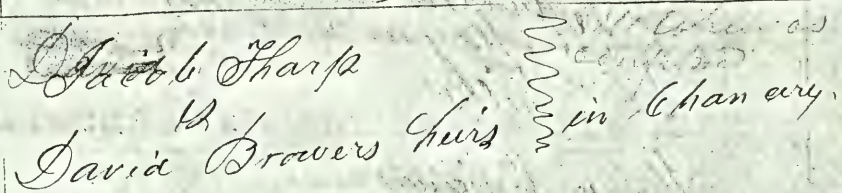 Jacob Tharp
vs
David Browers heirs } in Chancery.